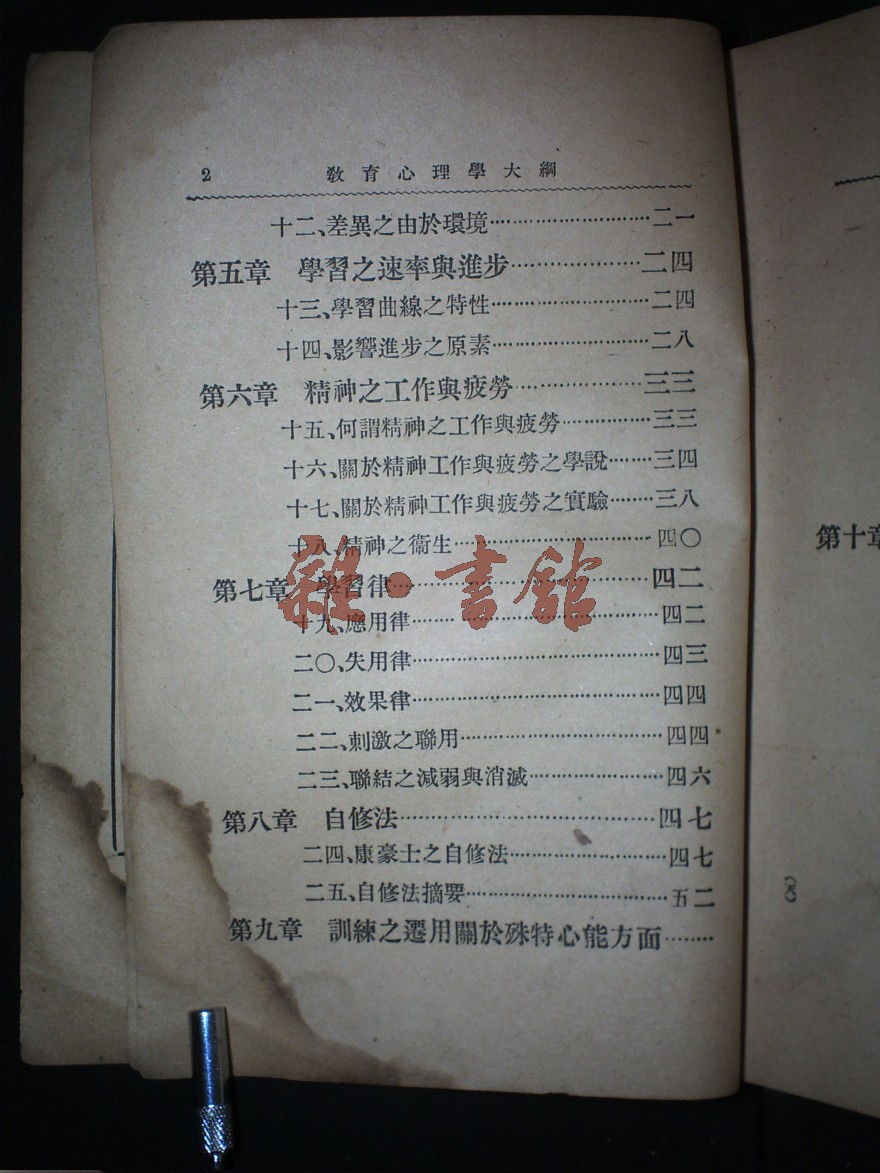 2 教育心理學大綱
十二、差異之由於環境……二一
第五章 學習之速率與進步……二四
十三、學習曲線之特性……二四
十四、影響進步之原素……二八
第六章 精神之工作與疲勞……三三
十五、何謂精神之工作與疲勞……三三
十六、關於精神工作與疲勞之學說……三四
十七、關於精神工作與疲勞之實驗……三八
十八、精神之衞生……四〇
第七章 學習律……四二
十九、應用律……四二
二〇、失用律……四三
二一、效果律……四四
二二、刺激之聯用……四四
二三、聯結之減弱與消滅……四六
第八章 自修法……四七
二四、康豪士之自修法……四七
二五、自修法摘要……五二
第九章 訓練之遷用關於殊特心能方面……
雜·書館
第十章